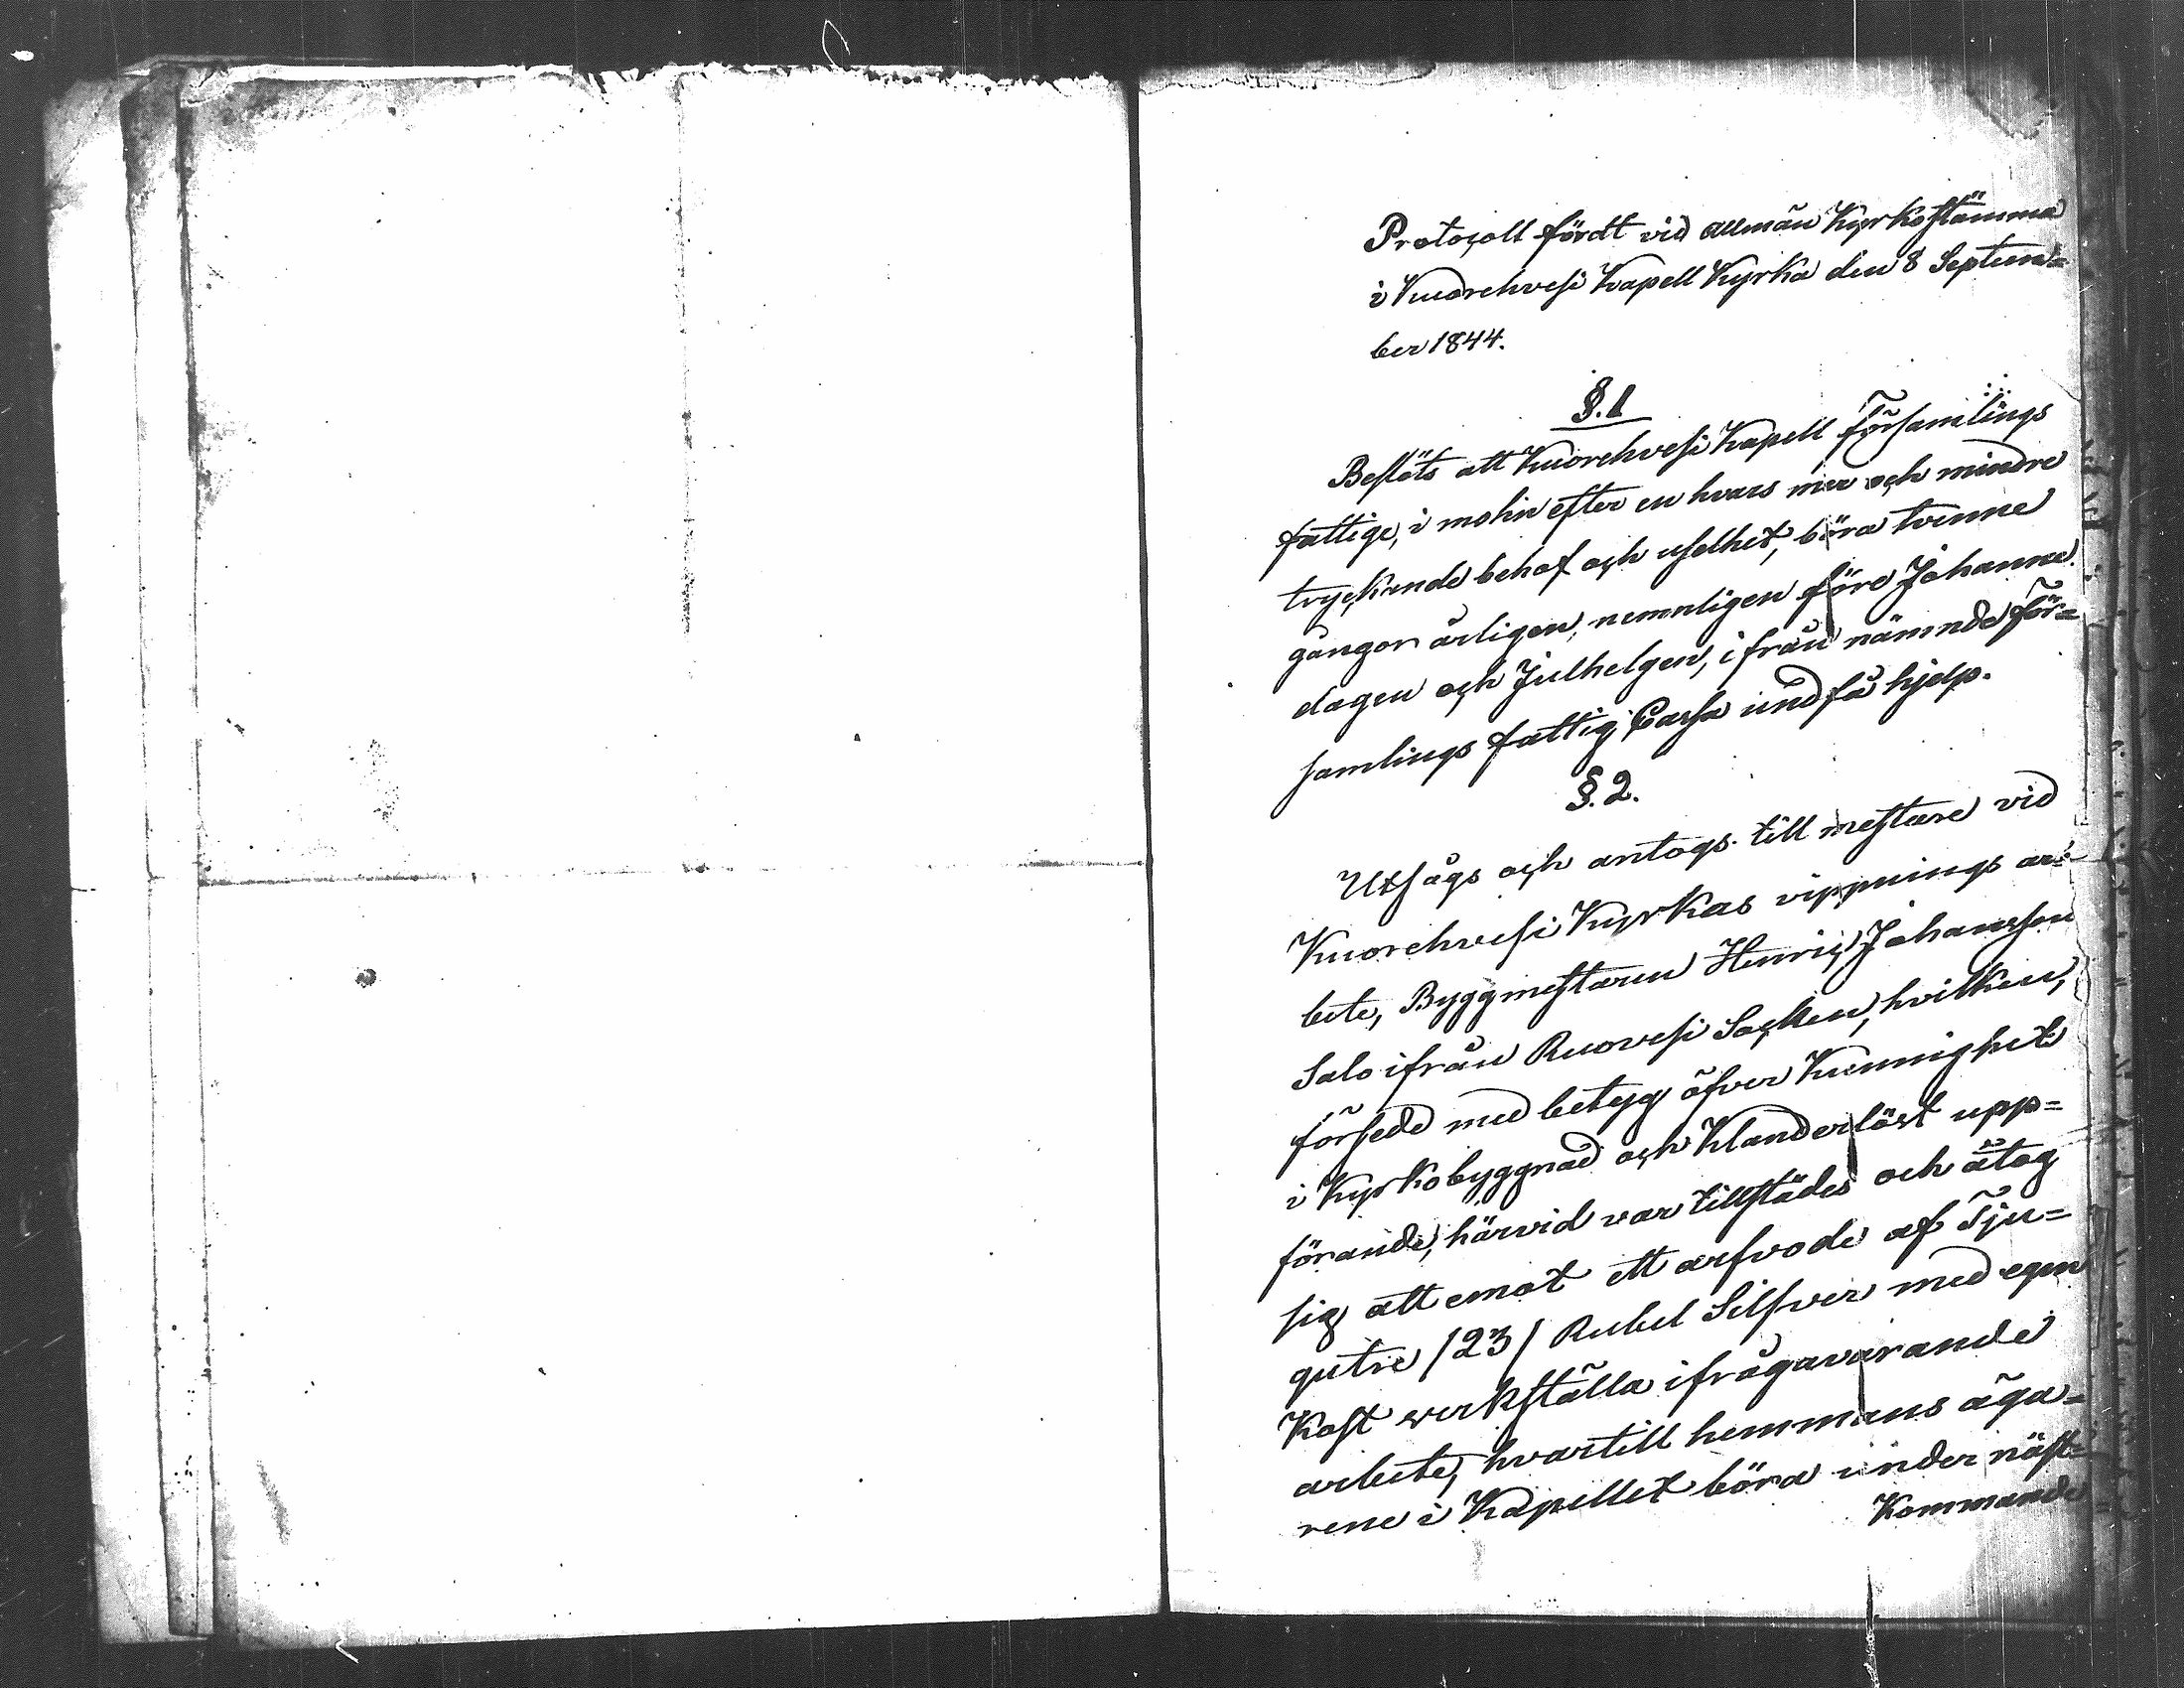 Protocoll fördt vid allmän Kyrkostämma
i Kuorehvesi Kapell Kyrka den 8 Septem=
ber 1844.
§. 1
Beslöts att Kuorehvesi Kapell Församlings
fattige, i mohn efter en hvars mer och mindre
tryckande behof och uselhet, böra tvenne
gångor årligen, nemnligen före Johanne
dagen och Julhelgen, ifrån nämnde För=
samlings fattig Cassa undfå hjelp.
§. 2.
Utsågs och antogs till mestare vid
Kuorehvesi Kyrkas vippnings ar=
bete, Byggmestaren Henric Johansson
Salo ifrån Ruovesi Socken, hvilken,
försedd med betyg öfver Kunnighet
i Kyrkobyggnad och Klanderlöst upp=
förande, härvid var tillstädes och åtog
sig att emot ett arfvode af Tju=
gutre /23/ Rubel Silfver med egen
Kost verkställa ifrågavarande
arbete, hvartill hemmans äga=
rene i Kapellet böra under näst=
Kommande